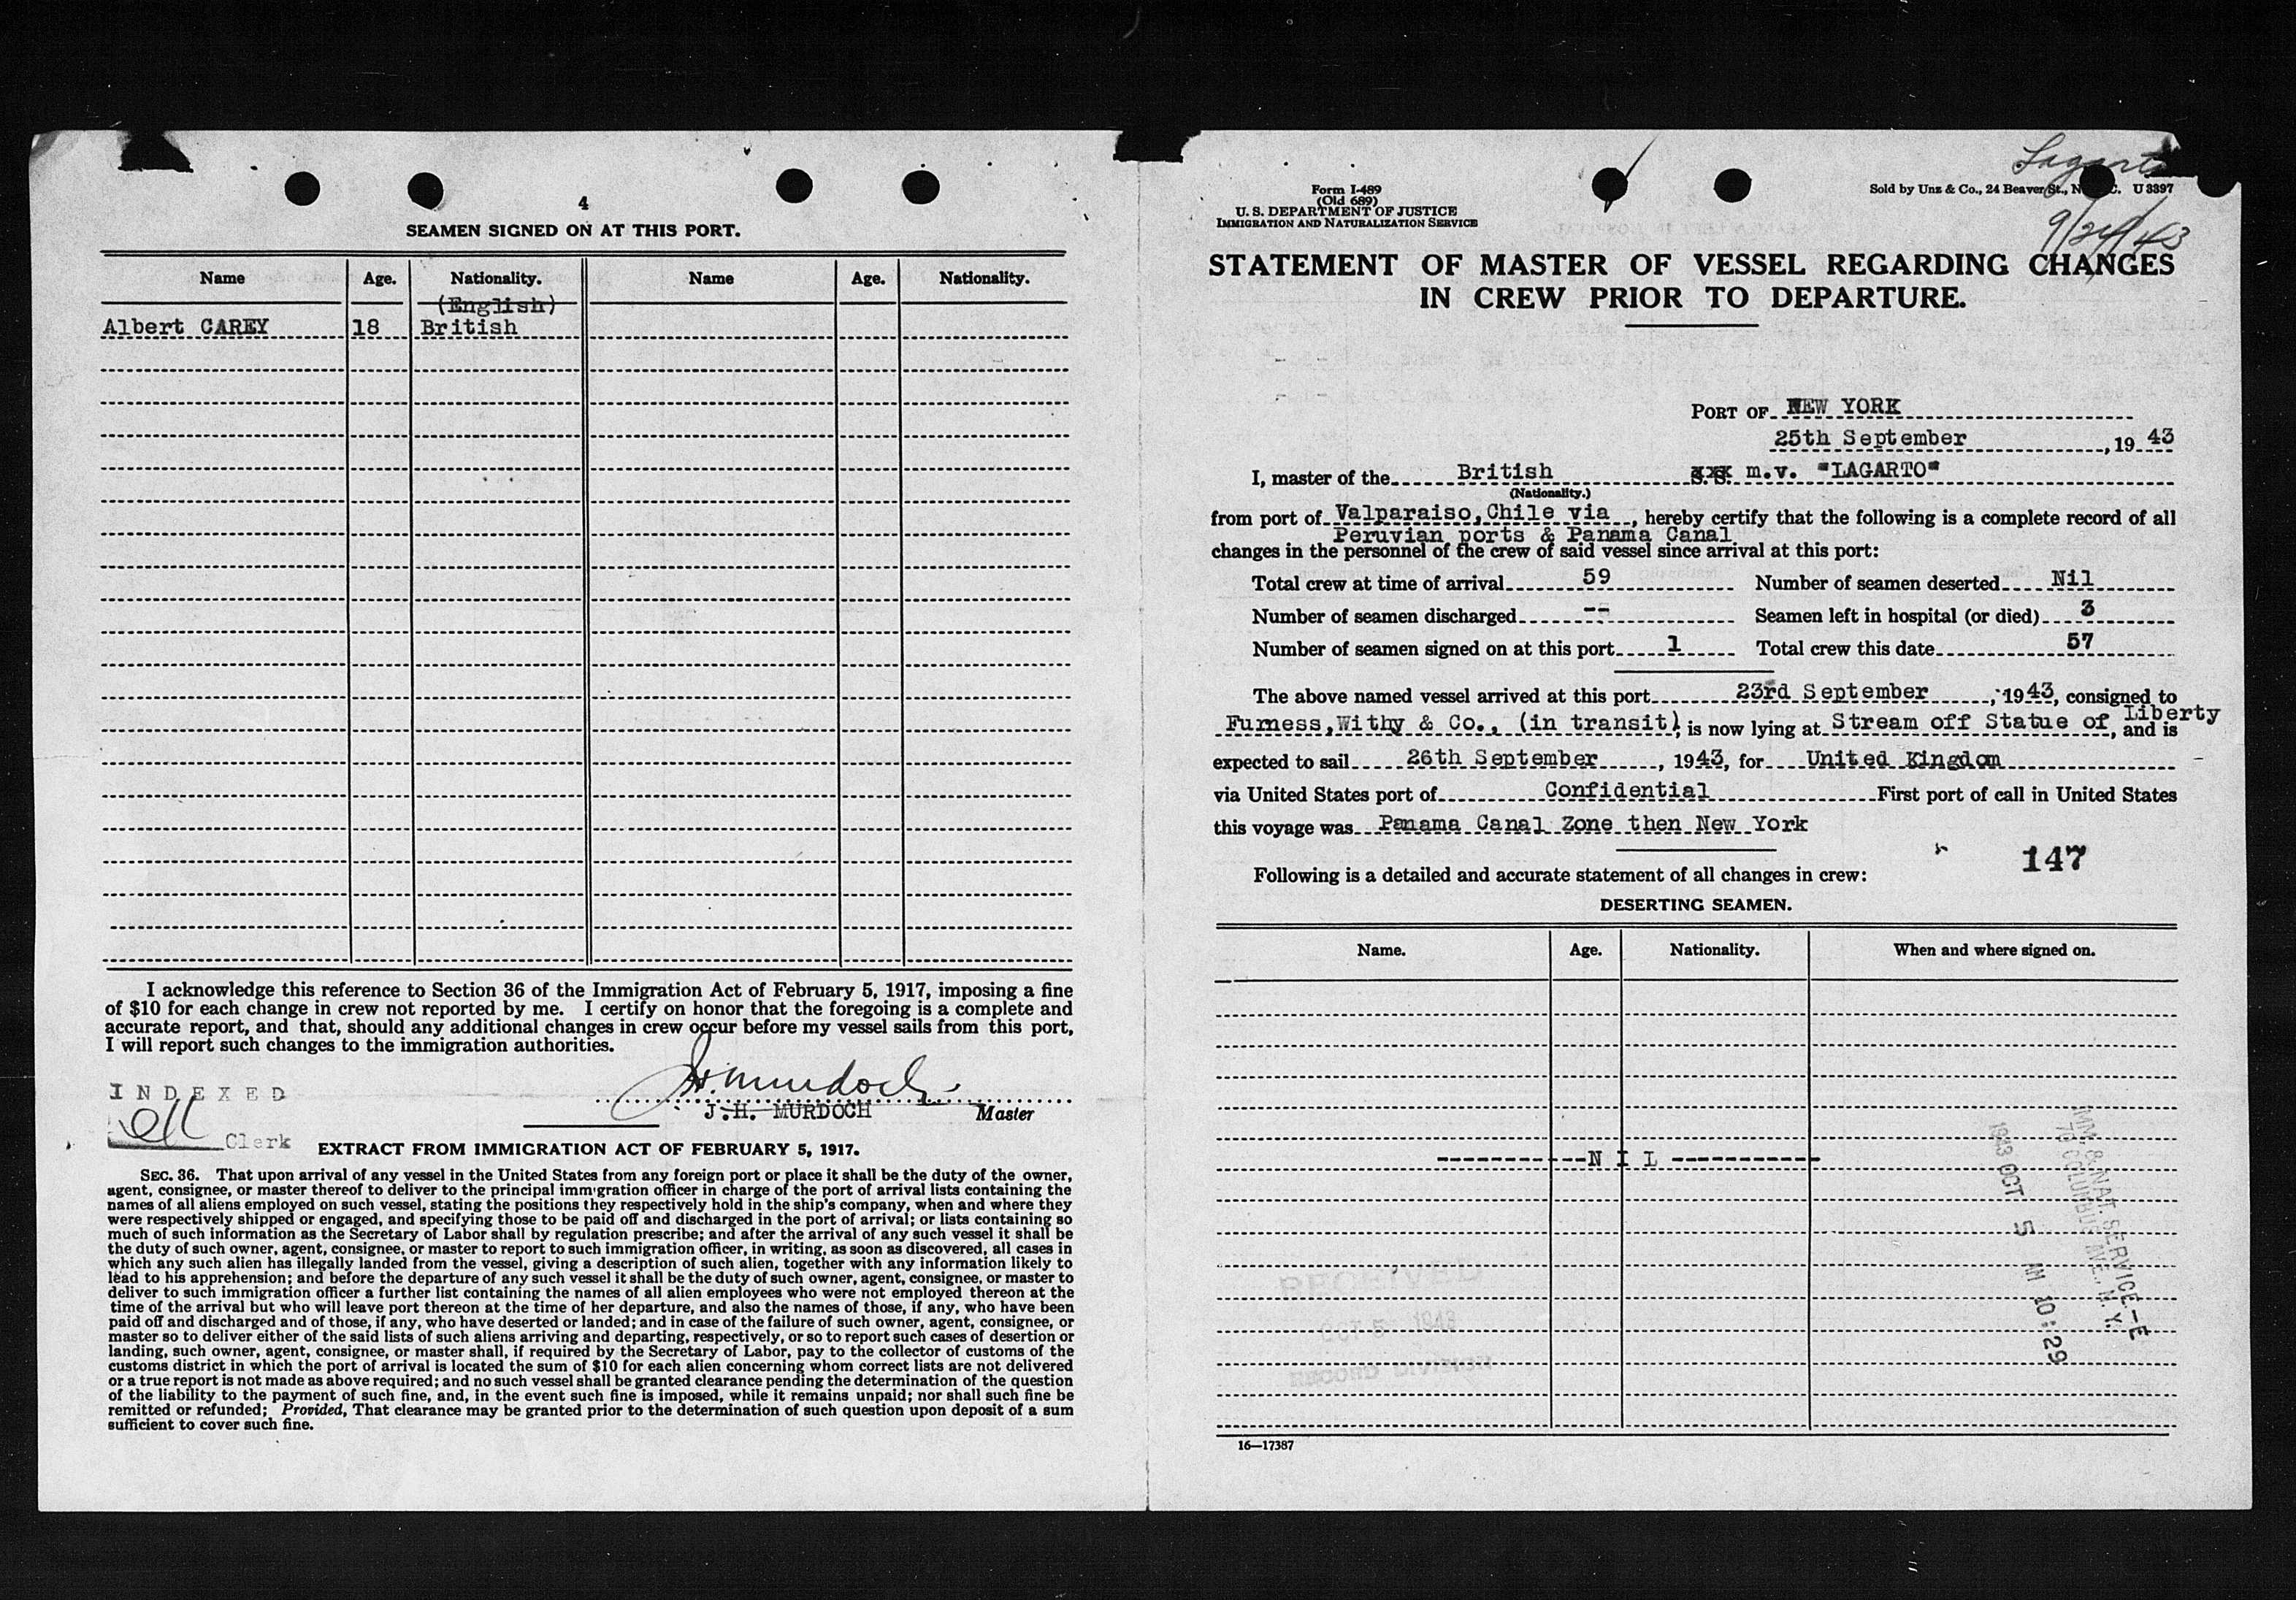 4
SEAMEN SIGNED ON AT THIS PORT.
Name Age. Nationality. Name Age. Nationality.
(English)
Albert CAREY 18 British
I acknowledge this reference to Section 36 of the Immigration Act of February 5, 1917, imposing a fine
of $10 for each change in crew not reported by me. I certify on honor that the foregoing is a complete and
accurate report, and that, should any additional changes in crew occur before my vessel sails from this port,
I will report such changes to the immigration authorities.
J.H. Murdoch
J.H. MURDOCH Master
INDEXED
Clerk
EXTRACT FROM IMMIGRATION ACT OF FEBRUARY 5, 1917.
SEC. 36. That upon arrival of any vessel in the United States from any foreign port or place it shall be the duty of the owner,
agent, consignee, or master thereof to deliver to the principal immigration officer in charge of the port of arrival lists containing the
names of all aliens employed on such vessel, stating the positions they respectively hold in the ship's company, when and where they
were respectively shipped or engaged, and specifying those to be paid off and discharged in the port of arrival; or lists containing so
much of such information as the Secretary of Labor shall by regulation prescribe; and after the arrival of any such vessel it shall be
the duty of such owner, agent, consignee, or master to report to such immigration officer, in writing, as soon as discovered, all cases in
which any such alien has illegally landed from the vessel, giving a description of such alien, together with any information likely to
lead to his apprehension; and before the departure of any such vessel it shall be the duty of such owner, agent, consignee, or master to
deliver to such immigration officer a further list containing the names of all alien employees who were not employed thereon at the
time of the arrival but who will leave port thereon at the time of her departure, and also the names of those, if any, who have been
paid off and discharged and of those, if any, who have deserted or landed; and in case of the failure of such owner, agent, consignee, or
master so to deliver either of the said lists of such aliens arriving and departing, respectively, or so to report such cases of desertion or
landing, such owner, agent, consignee, or master shall, if required by the Secretary of Labor, pay to the collector of customs of the
customs district in which the port of arrival is located the sum of $10 for each alien concerning whom correct lists are not delivered
or a true report is not made as above required; and no such vessel shall be granted clearance pending the determination of the question
of the liability to the payment of such fine, and, in the event such fine is imposed, while it remains unpaid; nor shall such fine be
remitted or refunded; Provided, That clearance may be granted prior to the determination of such question upon deposit of a sum
sufficient to cover such fine.
Lagarto
Form I-489
(Old 689)
U. S. DEPARTMENT OF JUSTICE
IMMIGRATION AND NATURALIZATION SERVICE
Sold by Unz & Co., 24 Beaver St., N. C. U 3397
9/24/43
STATEMENT OF MASTER OF VESSEL REGARDING CHANGES
IN CREW PRIOR TO DEPARTURE.
PORT OF NEW YORK
25th September, 19 43
I, master of the British S.S. m.v. "LAGARTO"
(Nationality.)
from port of Valparaiso, Chile via, hereby certify that the following is a complete record of all
Peruvian ports & Panama Canal
changes in the personnel of the crew of said vessel since arrival at this port:
Total crew at time of arrival 59 Number of seamen deserted Nil
Number of seamen discharged -- Seamen left in hospital (or died) 3
Number of seamen signed on at this port 1 Total crew this date 57
The above named vessel arrived at this port 23rd September, 1943, consigned to
Furness, Withy & Co., (in transit); is now lying at Stream off Statue of Liberty, and is
expected to sail 26th September, 1943, for United Kingdom
via United States port of Confidential First port of call in United States
this voyage was Panama Canal Zone then New York
147
Following is a detailed and accurate statement of all changes in crew:
DESERTING SEAMEN.
Name. Age. Nationality. When and where signed on.
-----------N I L -----------
IMM. & NAT. SERVICE-E
70 COLUMBUS AVE., N.Y.
1943 OCT 5 AM 10:29
RECEIVED
OCT 5 1943
RECORD DIVISION
16—17387